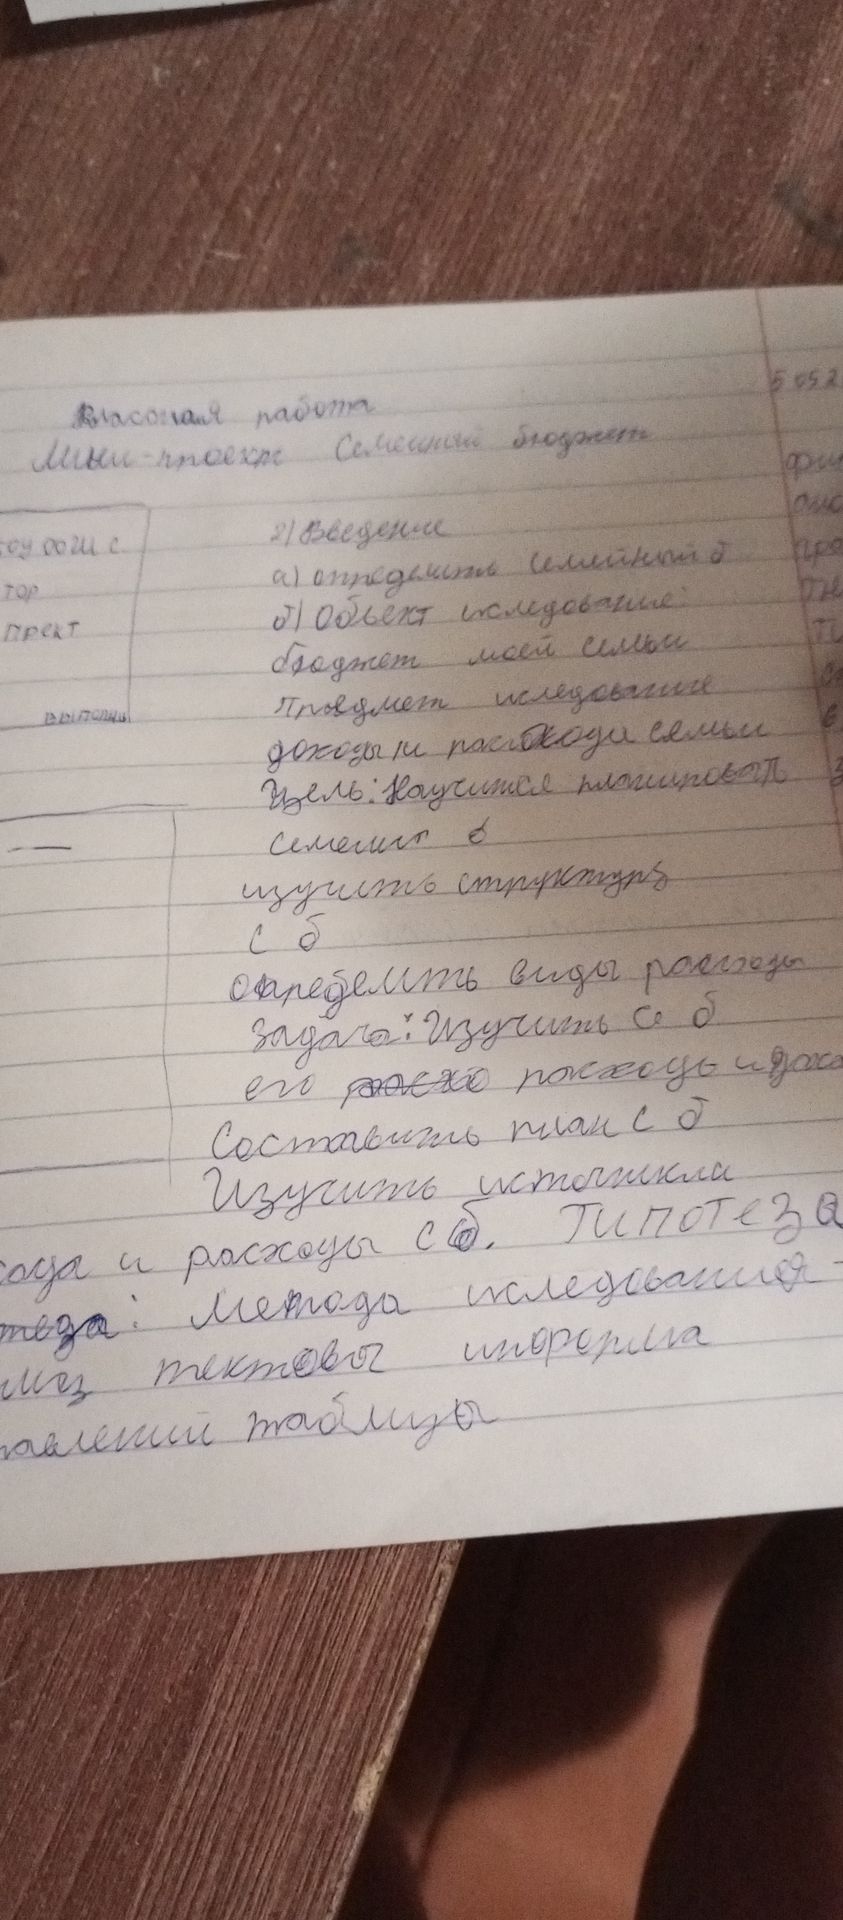 Класоная работа
Мини-проект Семейный бюджет
5 05 2
2) Введение
а) определить семейный б
б) Обьект иследование:
бюджет моей семьи
Предмет иследование
доходы и расбходи семьи
Цель: Научится планироват
семейны б
изучить структуру
с б
определить виды расходы
Задача: Изучить с б
его расходы и дохо
Составить план с б
Изучить источники
хода и расходы с б. Гипотеза
Метода иследования
тектовы информа
тавлений таблицы
ООШ с.
тор
прект
выполни